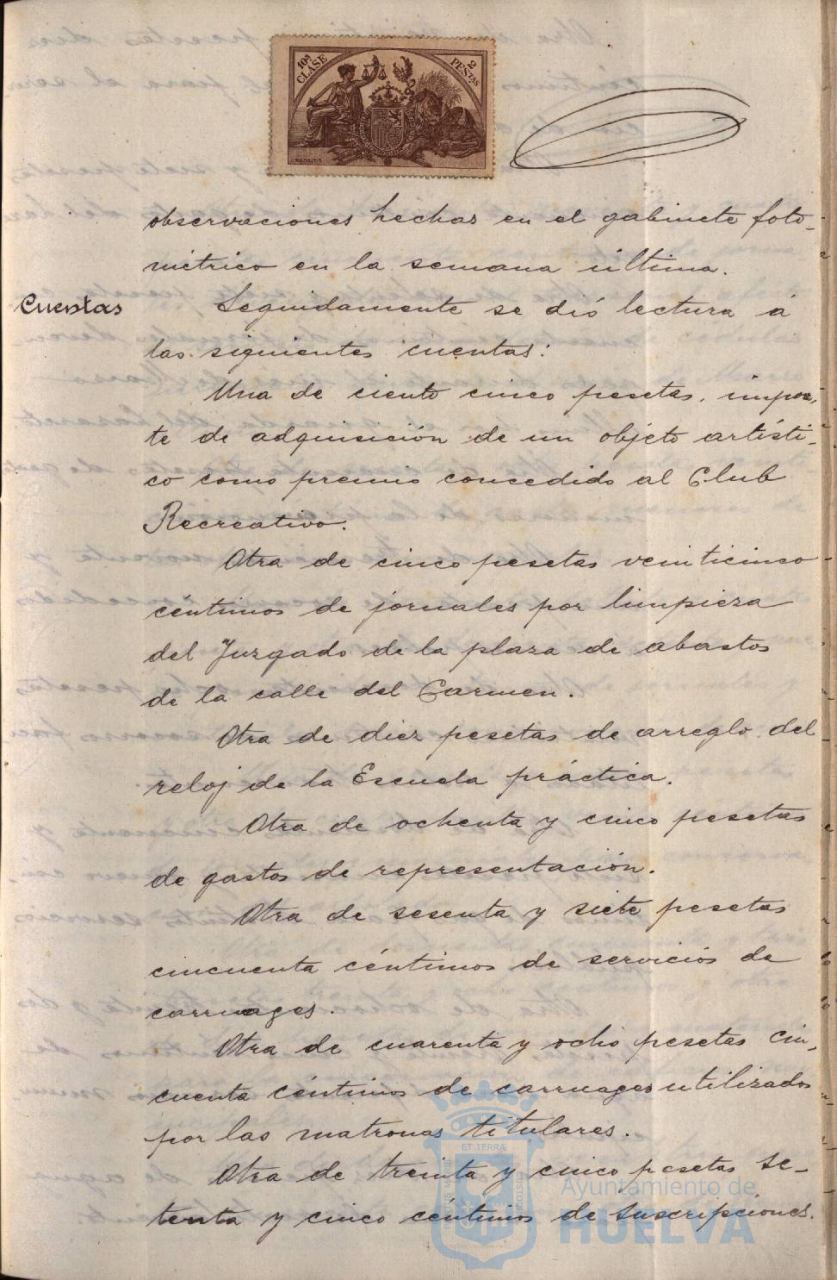 10ª CLASE
2 PESETAS
observaciones hechas en el gabinete foto-
métrico en la semana última.
Cuentas
Seguidamente se dió lectura á
las siguientes cuentas:
Una de ciento cinco pesetas, impor-
te de adquisición de un objeto artísti-
co como premio concedido al Club
Recreativo.
Otra de cinco pesetas veinticinco
céntimos de jornales por limpieza
del Juzgado de la plaza de abastos
de la calle del Carmen.
Otra de diez pesetas de arreglo del
reloj de la Escuela práctica.
Otra de ochenta y cinco pesetas
de gastos de representación.
Otra de sesenta y siete pesetas
cincuenta céntimos de servicios de
carruages.
Otra de cuarenta y ocho pesetas cin-
cuenta céntimos de carruages utilizados
por las matronas titulares.
Otra de treinta y cinco pesetas se-
tenta y cinco céntimos de suscripciones.
ET TERRA
Ayuntamiento de
HUELVA